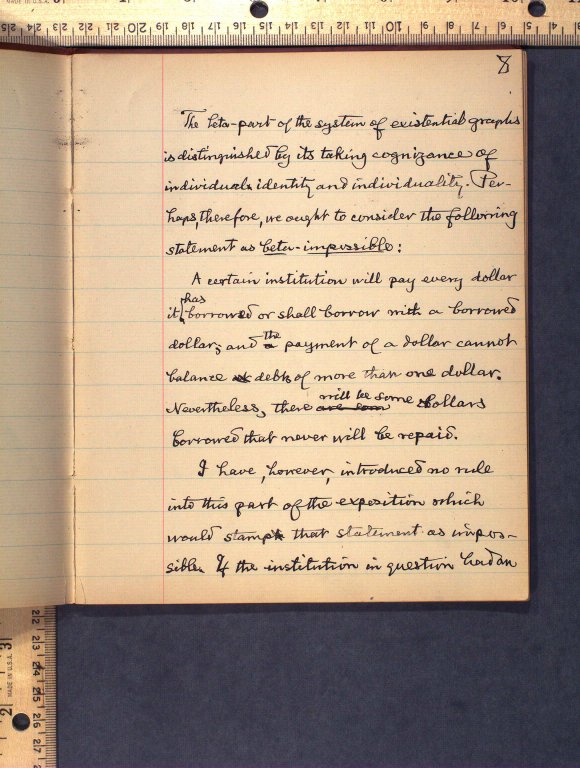 8
The beta-part of the system of existential graphs
is distinguished by its taking cognizance of
individual identity and individuality. Per-
haps, therefore, we ought to consider the following
statement as beta-impossible:
A certain institution will pay every dollar
it has borrowed or shall borrow with a borrowed
dollar; and the payment of a dollar cannot
balance debt of more than one dollar.
Nevertheless, there will be some dollars
borrowed that never will be repaid.
I have, however, introduced no rule
into this part of the exposition which
would stamp that statement as impos-
sible. If the institution in question had an
MADE IN U.S.A.
MADE IN U.S.A.